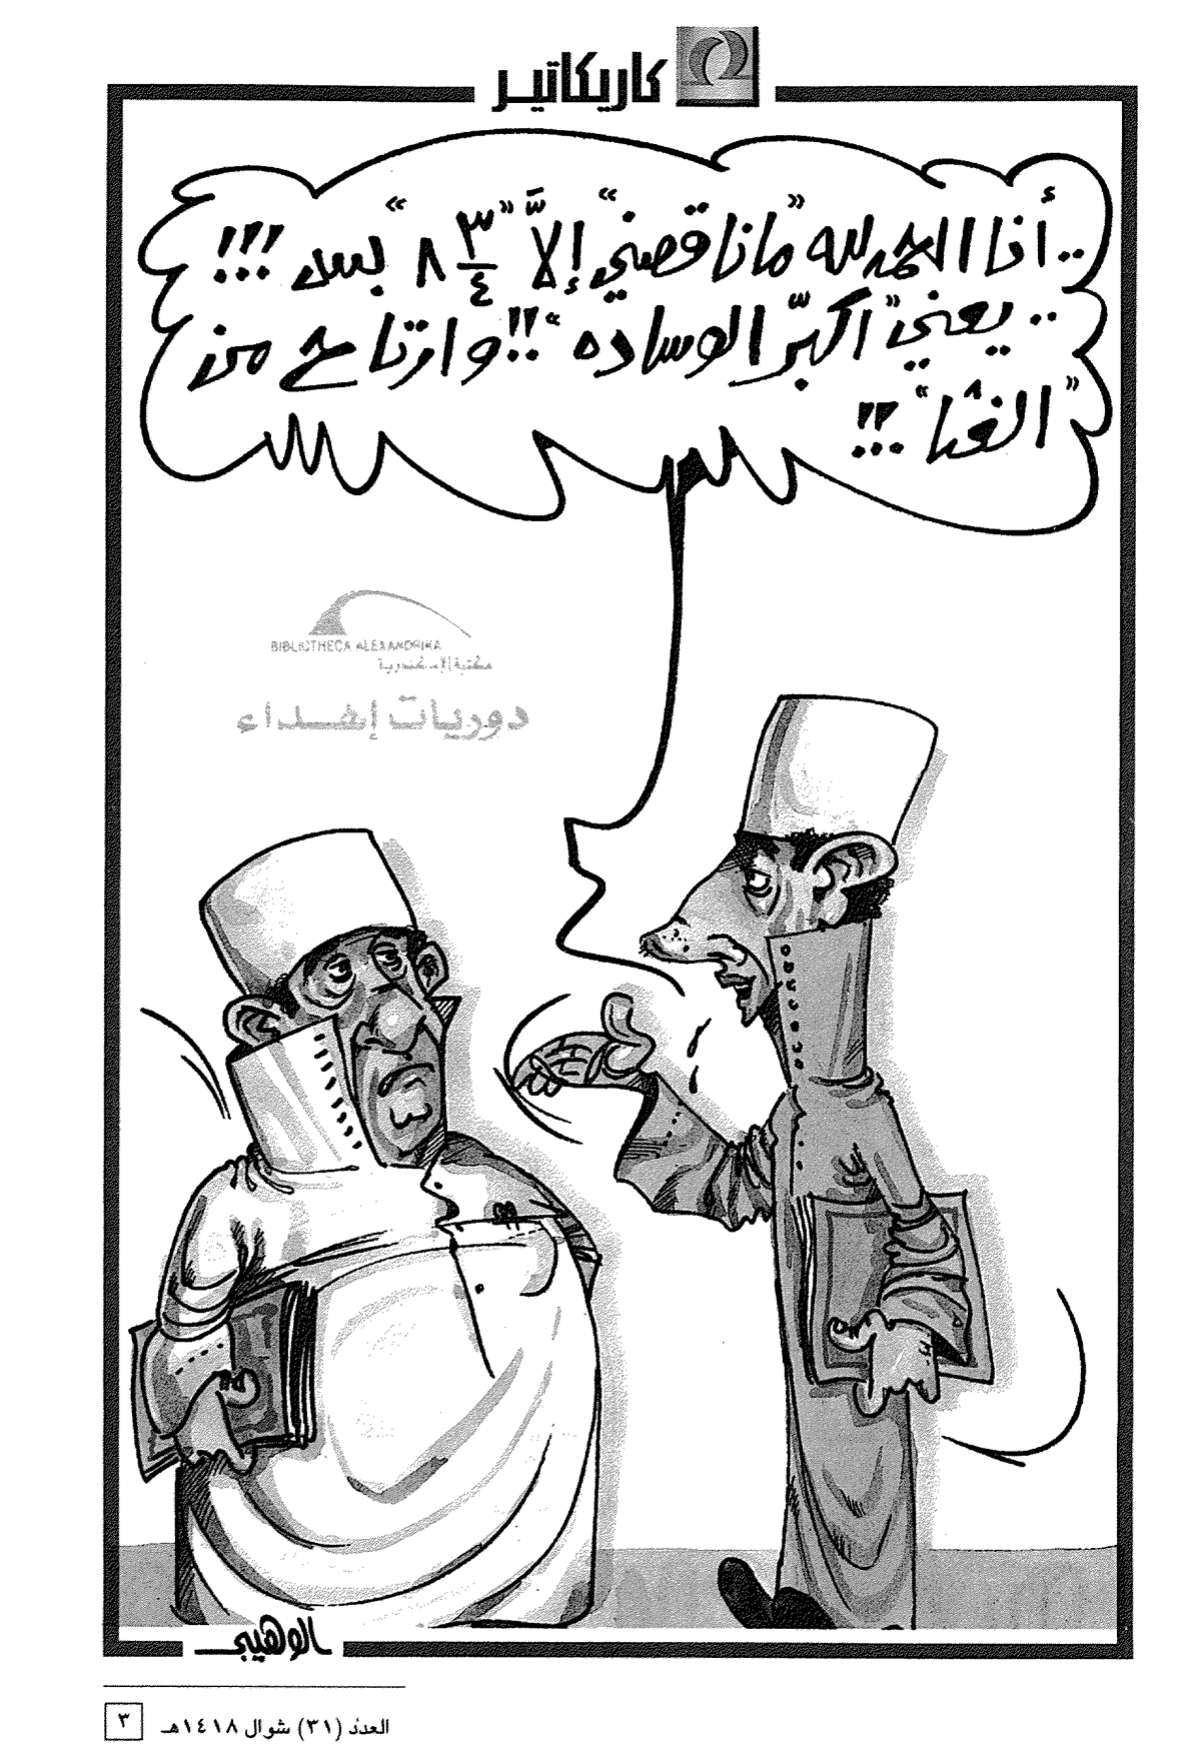 كاريكاتير
..أنا الحمد لله "ما ناقصني" إلاَّ "٨ ٣/٤" بس !!!
.. يعني "اكبّر الوساده" ..!! وارتاح من
"الغثا" ..!!
BIBLIOTHECA ALEXANDRINA
مكتبة الإسكندرية
دوريات إهداء
الوهيبي
العدد (٣١) شوال ١٤١٨هـ ٣